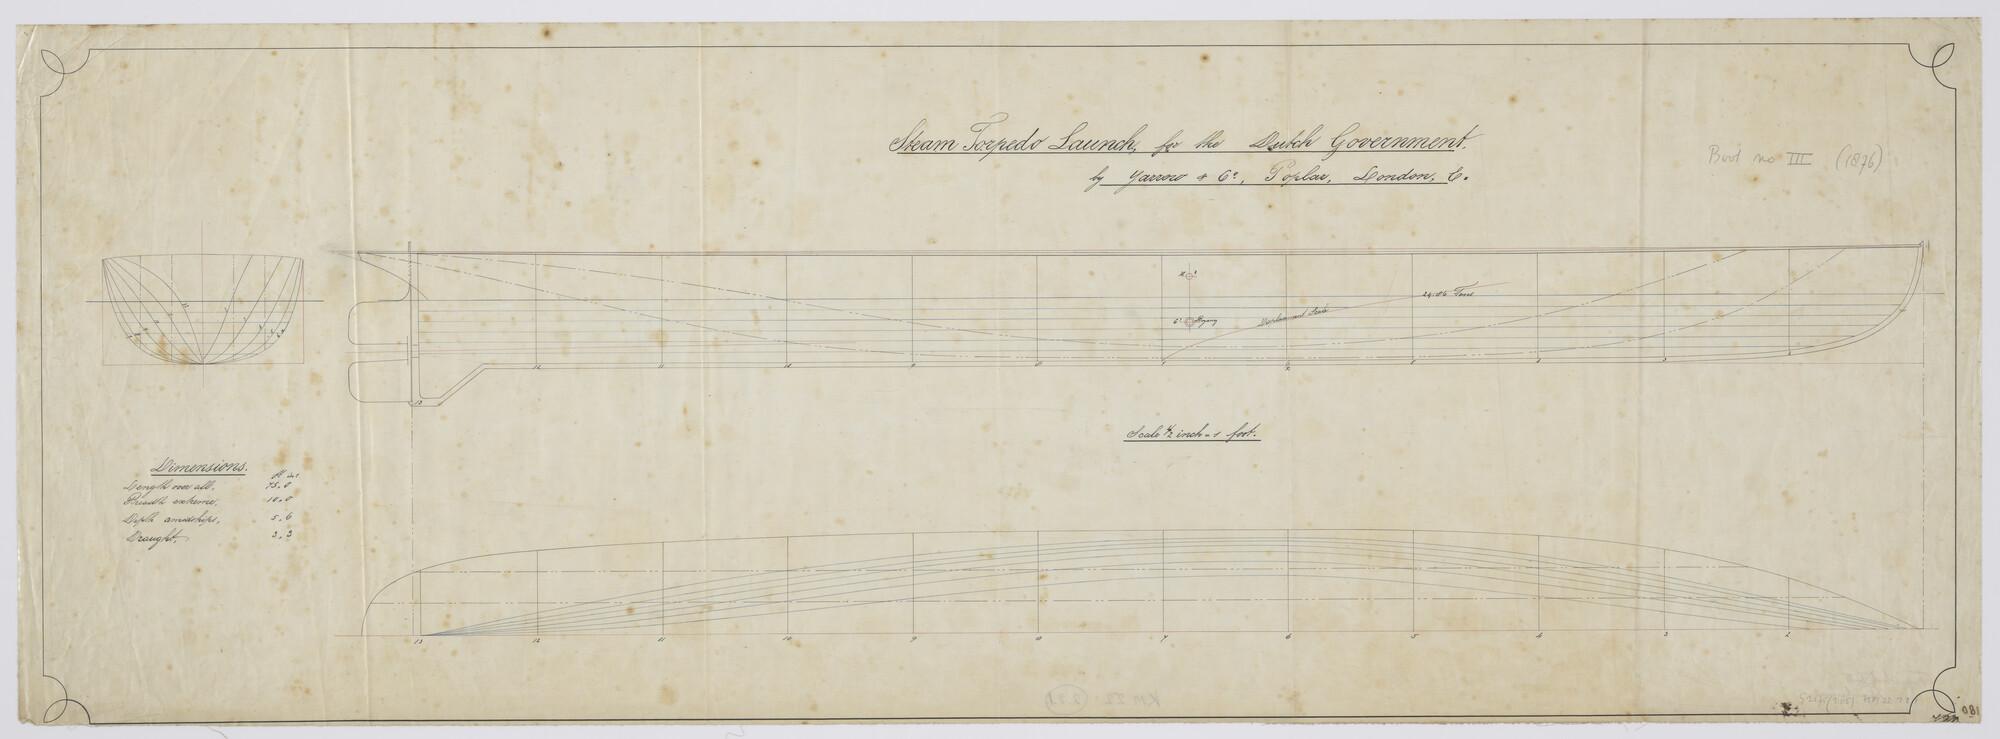 Steam Torpedo Launch, for the Dutch Government.
by Yarrow & Co., Poplar, London, E.
Boot no III (1876)
24.06 Tons
Displacement Scale
12 11 10 9 8 7 6 5 4 3 2
13
Scale 1/2 inch = 1 foot.
Dimensions.
ft ins
Length over all, 75.0
Breadth extreme, 10.0
Depth amidships, 5.6
Draught, 3.3
13 12 11 10 9 8 7 6 5 4 3 2
KM 22
180